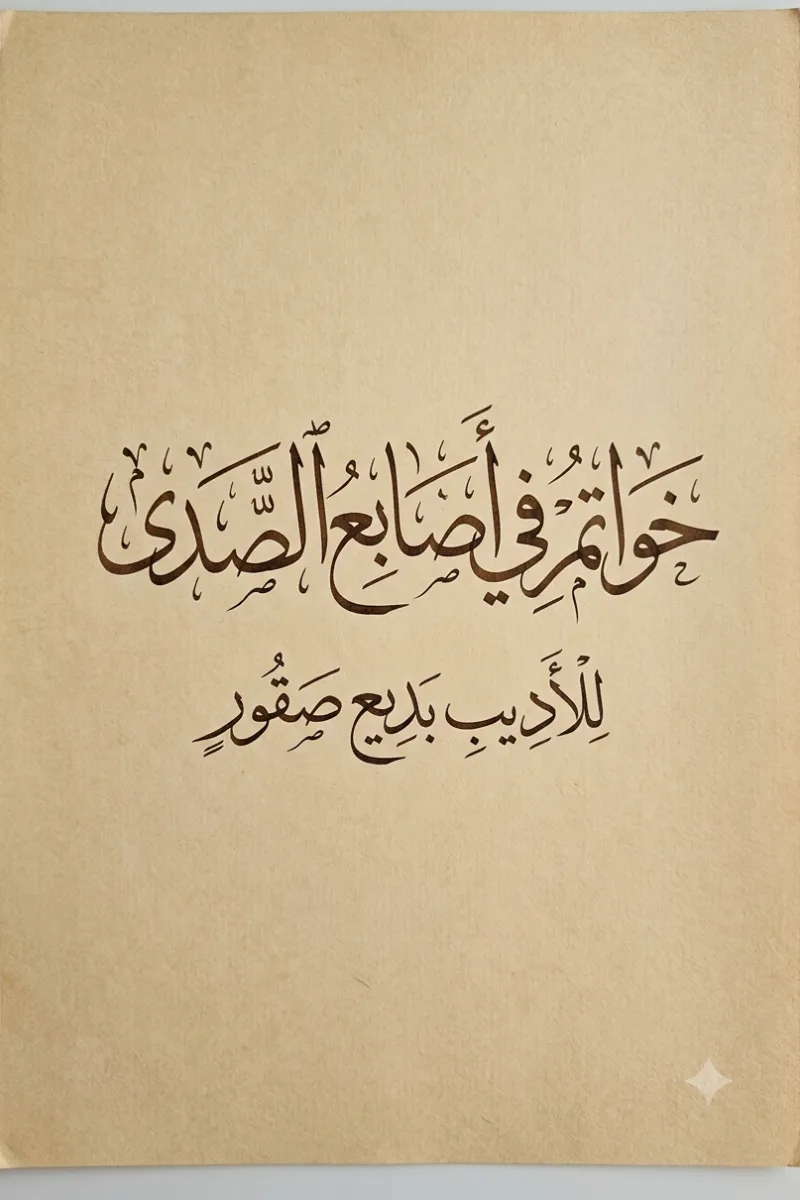 خَوَاتمُرْ فِي أَصَابِعُ ٱلصَّدَى
لِلْأَدِيبِ بَدِيع صَقُورٍ